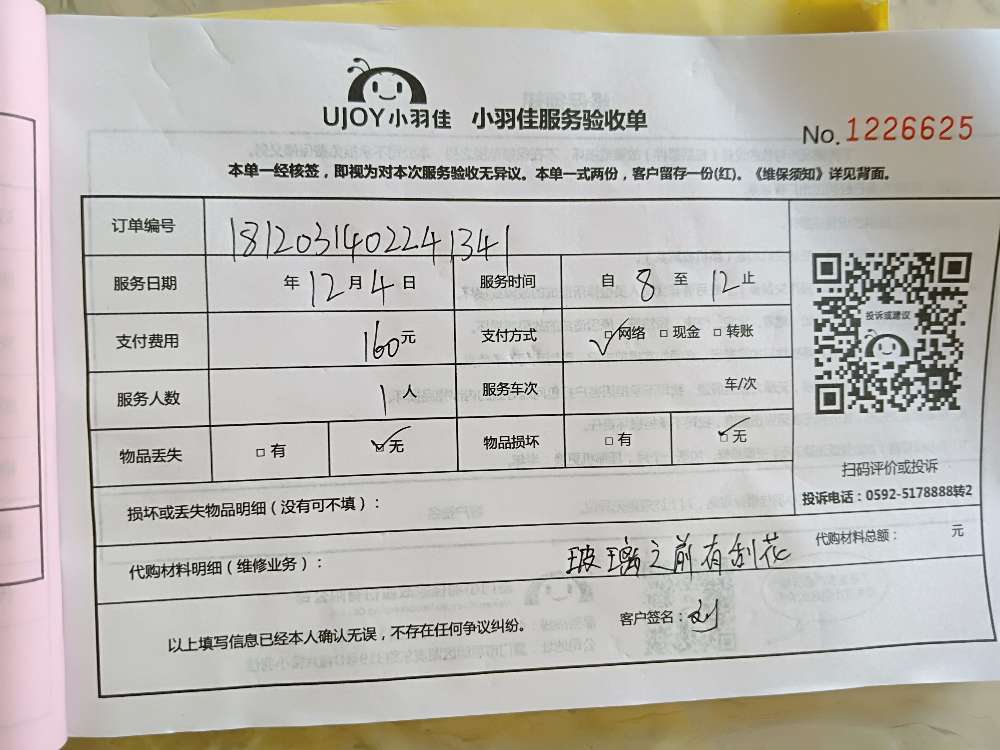 UJOY小羽佳 小羽佳服务验收单
No. 1226625
本单一经核签，即视为对本次服务验收无异议。本单一式两份，客户留存一份(红)。《维保须知》详见背面。
订单编号 1812031402241341
服务日期 年 12 月 4 日 服务时间 自 8 至 12 止
支付费用 160 元 支付方式 ☑网络 □现金 □转账
服务人数 1 人 服务车次 车/次
物品丢失 □有 ☑无 物品损坏 □有 ☑无
投诉或建议
扫码评价或投诉
投诉电话：0592-5178888转2
损坏或丢失物品明细（没有可不填）：
代购材料明细（维修业务）： 玻璃之前有刮花 代购材料总额： 元
以上填写信息已经本人确认无误，不存在任何争议纠纷。 客户签名：